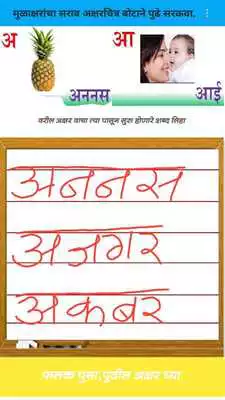 मुळाक्षरांचा सराव अक्षरचित्र बोटाने पुढे सरकवा.
अ आ
अननस आई
वरील अक्षर वाचा त्या पासून सुरु होणारे शब्द लिहा
अननस
अजगर
अकबर
फलक पुसा,पुढील अक्षर घ्या